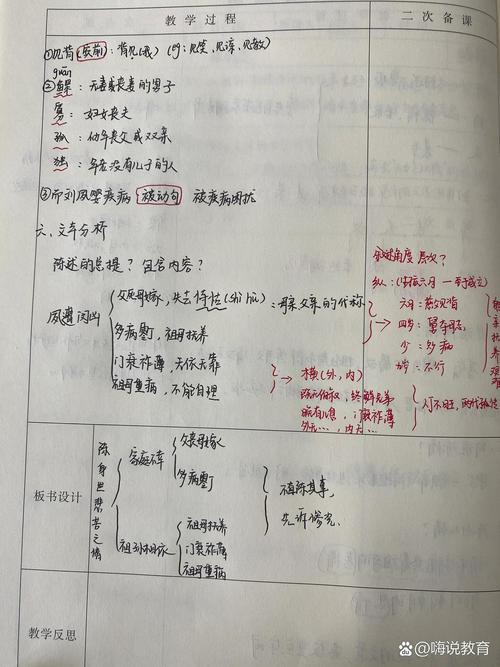 教学过程
二次备课
①见背(宾前)：背见(我)(eg：见笑、见谅、见教)
guān
②鳏：无妻或丧妻的男子
寡：妇女丧夫
孤：幼年丧父或双亲
独：年老没有儿子的人
③而刘夙婴疾病 被动句 被疾病困扰
六、文本分析
陈述的总提？包含内容？
夙遭闵凶
父死母嫁，失去怙恃(shì hù)：母亲父亲的代称
多病零丁，祖母抚养
门衰祚薄，去依无靠
祖母重病，不能自理
陈述角度 层次？
纵：(生孩六月 — 至于成立)
六月：慈父见背
四岁：舅夺母志
少：多病
九岁：不行
→ 横(外，内)
既无伯叔，终鲜兄弟
晚有儿息，门衰祚薄
外无…，内无…
人丁不旺，两代孤独
板书设计
陈身世悲苦之情
家庭不幸
父丧母嫁
多病零丁
祖孙相依
祖母抚养
门衰祚薄
祖母重病
直陈其事，
先诉惨况.
教学反思
嗨说教育